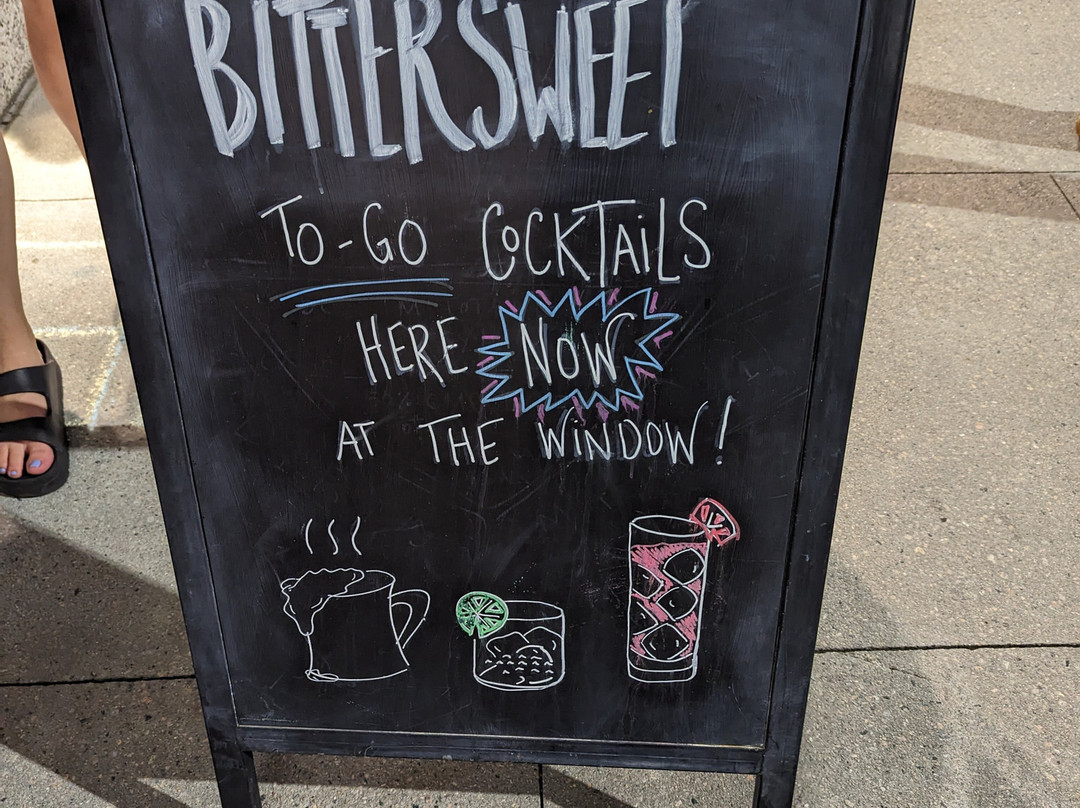 BITTERSWEET
TO-GO COCKTAiLS
HERE NOW
AT THE WiNDOW!